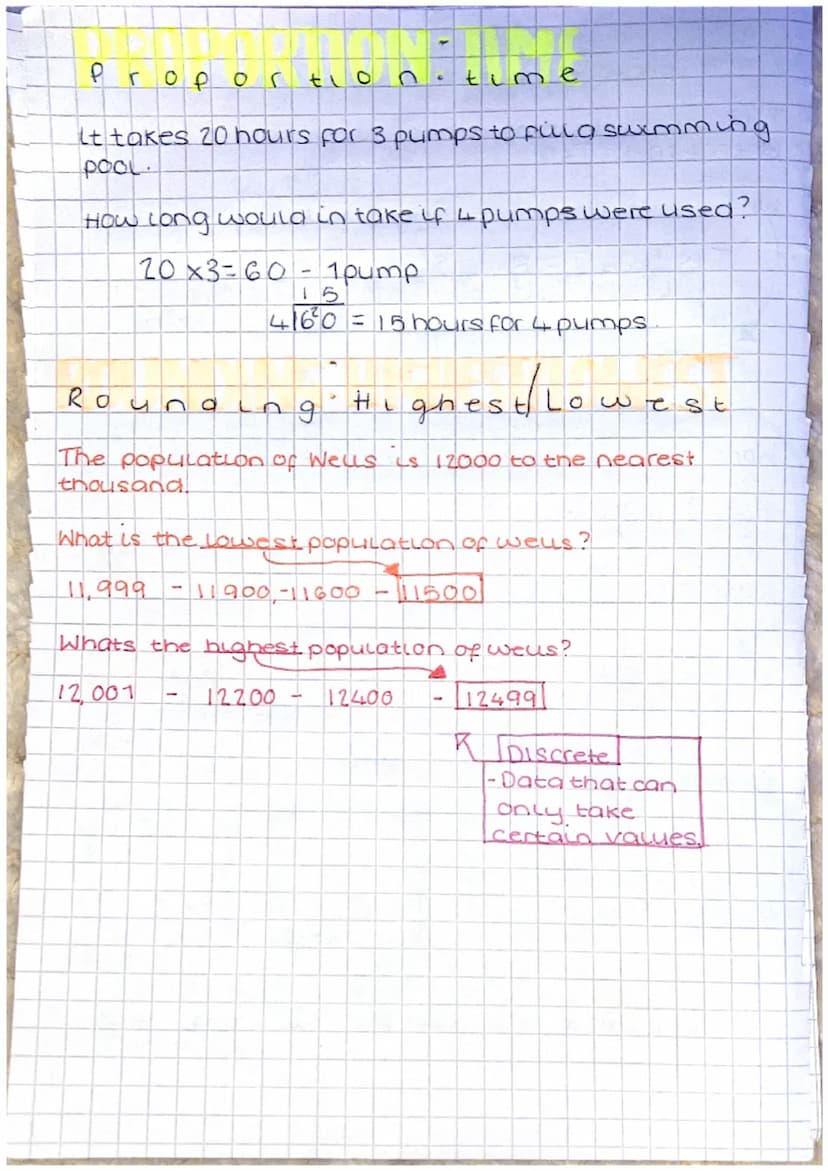 PROPORTION: TIME
Proportion: time
It takes 20 hours for 3 pumps to fill a swimming
pool.
How long would in take if 4 pumps were used?
20 x3=60 - 1pump
15
4|6²0 = 15 hours for 4 pumps.
Rounding: Highest/Lowest
The population of Wells is 12000 to the nearest
thousand.
What is the lowest population of wells?
11,999 - 11900,-11600 - 11500
Whats the highest population of wells?
12,001 - 12200 - 12400 - 12499
Discrete
-Data that can
only take
certain values.